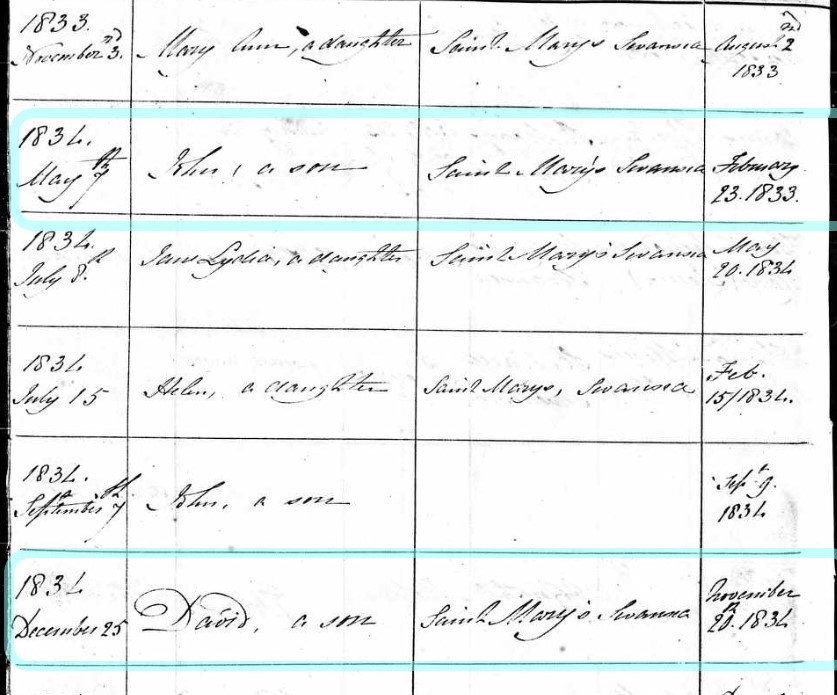 1833.
November 3rd. Mary Ann, a daughter Saint Marys Swansea August 2nd
1833
1834.
May 7th John, a son Saint Mary's Swansea February
23. 1833.
1834. May
July 8.th Jane Lydia, a daughter Saint Mary's Swansea 20. 1834
1834 Feb.
July 15 Helen, a daughter Saint Marys, Swansea 15/1834.
1834.
September 7th John, a son Sept 9.
1834
1834 November
December 25 David, a son Saint Mary's Swansea 20th. 1834